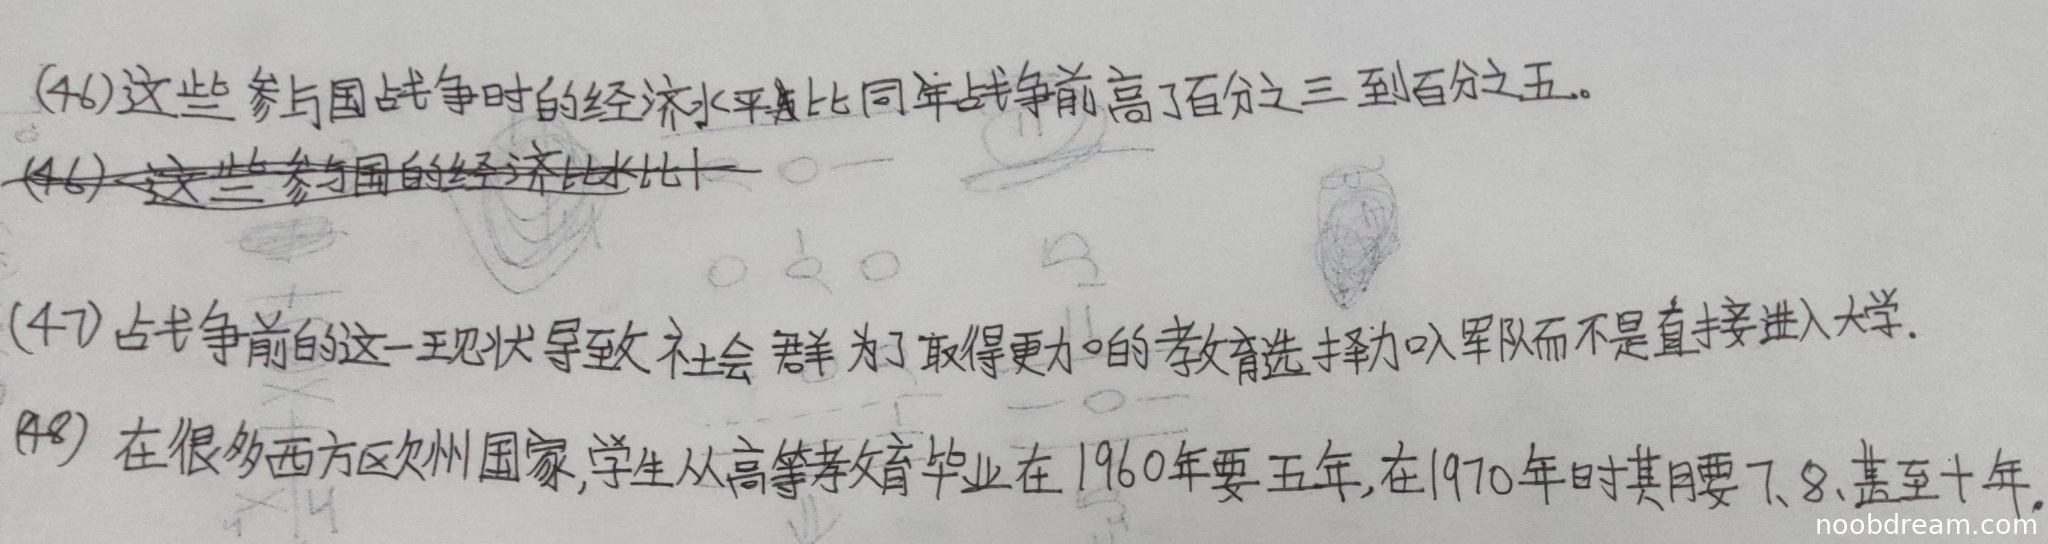 (46)这些参与国战争时的经济水平比同年战争前高了百分之三到百分之五。
(46) 这些参与国的经济比水比
(47)战争前的这一现状导致社会群为了取得更加的教育选择加入军队而不是直接进入大学.
(48) 在很多西方欧州国家,学生从高等教育毕业在1960年要五年,在1970年时其月要7、8、甚至十年.
noobdream.com